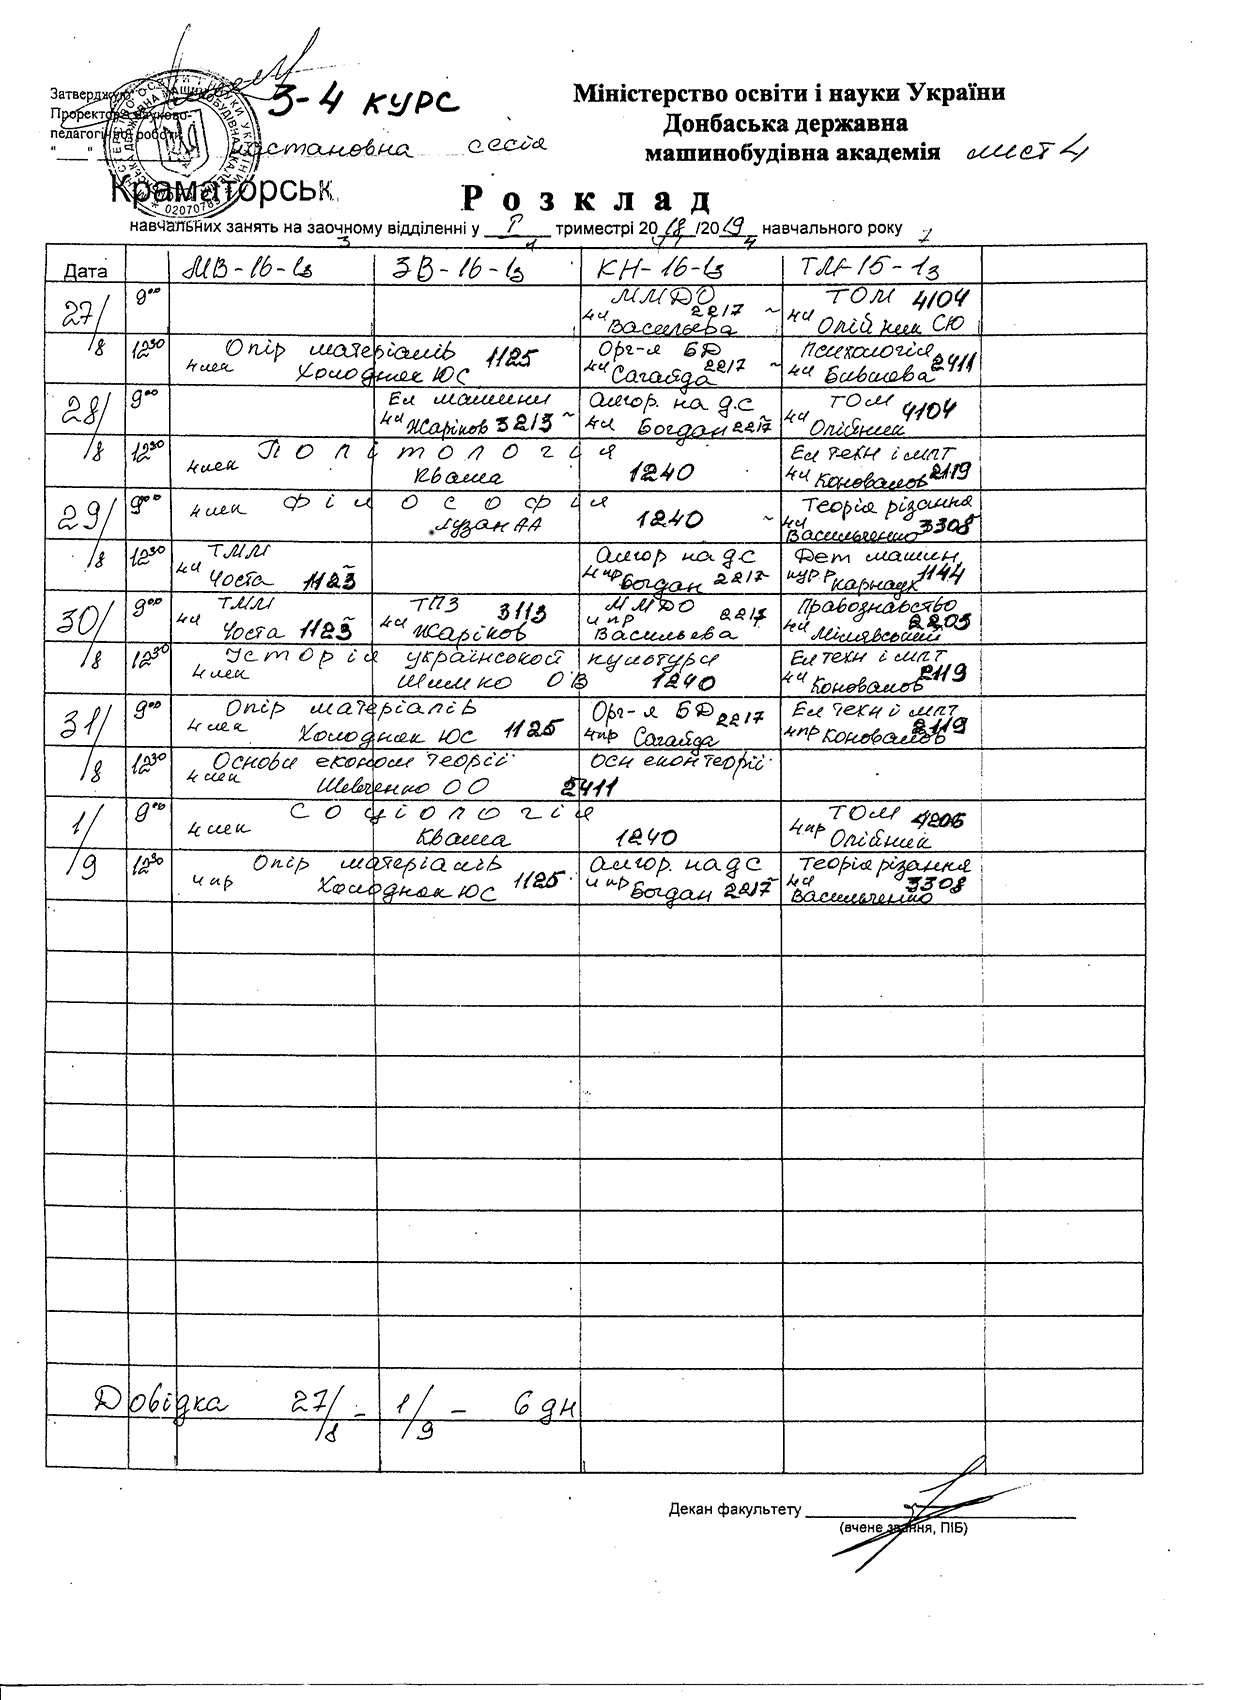 Затверджую
Проректор з науково-
педагогічної роботи
3-4 курс
настановна сесія
Міністерство освіти і науки України
Донбаська державна
машинобудівна академія лист 4
Краматорськ
Розклад
навчальних занять на заочному відділенні у I триместрі 2018/2019 навчального року
Дата МВ-16-1з ЗВ-16-1з КН-16-1з ТМ-15-1з
27/8 9⁰⁰ ММДО 2217 ТОМ 4104
4ч Васильєва 4ч Олійник СЮ
12³⁰ Опір матеріалів 1125 Орг-я БД 2217 Психологія 2411
4лек Холодняк ЮС 4ч Сагайда 4ч Бившева
28/8 9⁰⁰ Ел машини Алгор. на д.с ТОМ 4104
4ч Жаріков 3213 4ч Богдан 2217 4ч Олійник
12³⁰ Політологія Ел техн і МПТ
4лек Кваша 1240 4ч Коновалов 2119
29/8 9⁰⁰ Філософія Теорія різання
4лек Лузан АА 1240 4ч Васильченко 3308
12³⁰ ТММ Алгор на дс Дет машин
4ч Чоста 1123 4пр Богдан 2217 кур р Карнаух 1144
30/8 9⁰⁰ ТММ ТПЗ 3113 ММДО 2217 Правознавство 2203
4ч Чоста 1123 4ч Жаріков 4пр Васильєва 4ч Мілявський
12³⁰ Історія української культури Ел техн і МПТ
4лек Шимко ОВ 1240 4ч Коновалов 2119
31/8 9⁰⁰ Опір матеріалів Орг-я БД 2217 Ел техн і МПТ
4лек Холодняк ЮС 1125 4пр Сагайда 4пр Коновалов 2119
12³⁰ Основи економ теорії осн екон теорії
4лек Шевченко ОО 2411
1/9 9⁰⁰ Соціологія ТОМ 4206
4лек Кваша 1240 4пр Олійник
12³⁰ Опір матеріалів Алгор. на дс Теорія різання
4пр Холодняк ЮС 1125 4пр Богдан 2217 4ч Васильченко 3308
Довідка 27/8 - 1/9 - 6 дн
Декан факультету
(вчене звання, ПІБ)